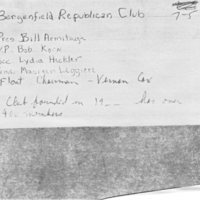 Bergenfield Republican Club
7-5
Pres Bill Armitage
V.P. Bob Korn
Sec Lydia Huckler
Marian Liggieri
Float Chairman - Vernon Cox
Club founded in 19__ has over
400 members